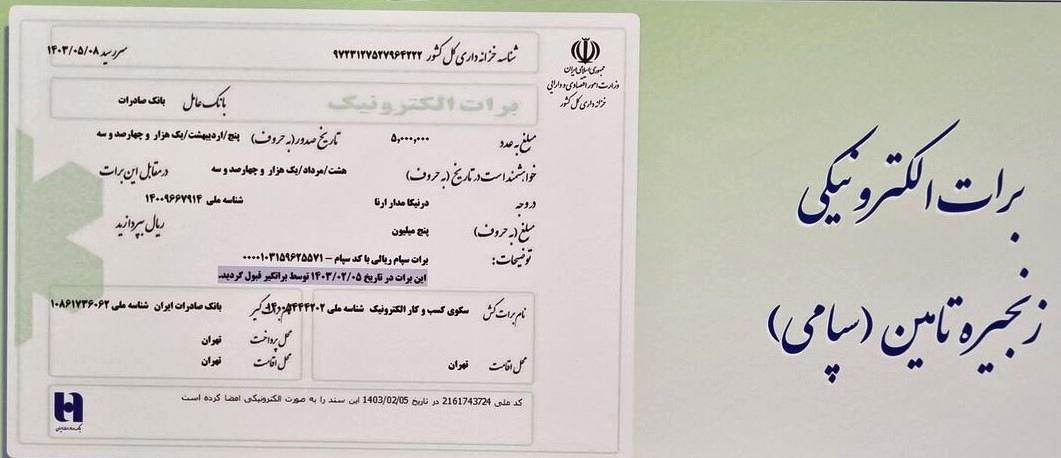 جمهوری اسلامی ایران
وزارت امور اقتصادی و دارایی
خزانه داری کل کشور
شناسه خزانه داری کل کشور ۹۷۲۳۱۲۷۵۲۷۹۶۴۲۲۲ سررسید ۱۴۰۳/۰۵/۰۸
برات الکترونیک بانک عامل بانک صادرات
مبلغ به عدد ۵,۰۰۰,۰۰۰ تاریخ صدور (به حروف) پنج/اردیبهشت/یک هزار و چهارصد و سه
خواهشمند است در تاریخ (به حروف) هشت/مرداد/یک هزار و چهارصد و سه در مقابل این برات
در وجه درنیکا مدار ارنا شناسه ملی ۱۴۰۰۹۶۶۷۹۱۴
مبلغ (به حروف) پنج میلیون ریال بپردازید
توضیحات: برات سپام ریالی با کد سپام – ۰۰۰۰۱۰۳۱۵۹۶۲۵۵۷۱
این برات در تاریخ ۱۴۰۳/۰۲/۰۵ توسط براتگیر قبول گردید.
نام برات کش سکوی کسب و کار الکترونیک شناسه ملی
محل اقامت تهران
برات گیر بانک صادرات ایران شناسه ملی ۱۰۸۶۱۷۳۶۰۶۲
محل پرداخت تهران
محل اقامت تهران
کد ملی 2161743724 در تاریخ 1403/02/05 این سند را به صورت الکترونیکی امضا کرده است
بانک صادرات ایران
برات الکترونیکی
زنجیره تامین (سپامی)